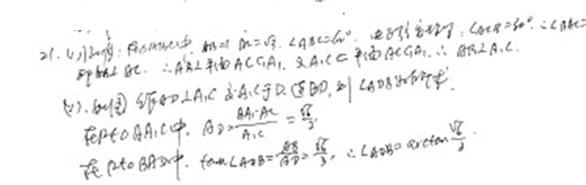 21. (1) 证明: 在△ABC中, AB=1 AC=√3, ∠ABC=60°. 由正弦定理, ∠ACB=30° ∴∠BAC=
即AB⊥AC. ∴AB⊥平面ACC₁A₁, 又A₁C⊂平面ACC₁A₁ ∴AB⊥A₁C.
(2). 如图 作AD⊥A₁C 交A₁C于D, 连BD, 则∠ADB为所求
在Rt△AA₁C中, AD=AA₁·AC/A₁C=√6/3,
在Rt△BAD中, tan∠ADB=AB/AD=√6/3, ∴∠ADB=arctan√6/3.